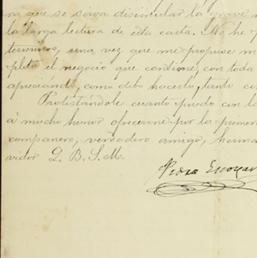 que se sirva disimular la
la larga lectura de esta carta. No he
termino, una vez que me propuse
el negocio que contiene, con toda
apreciando, como debo hacerlo, tanto
Protestándole cuanto puedo con
á mucho honor ofrecerme por la primera
compañero, verdadero amigo,
vidor Q. B. S. M.
Pedro Escobar